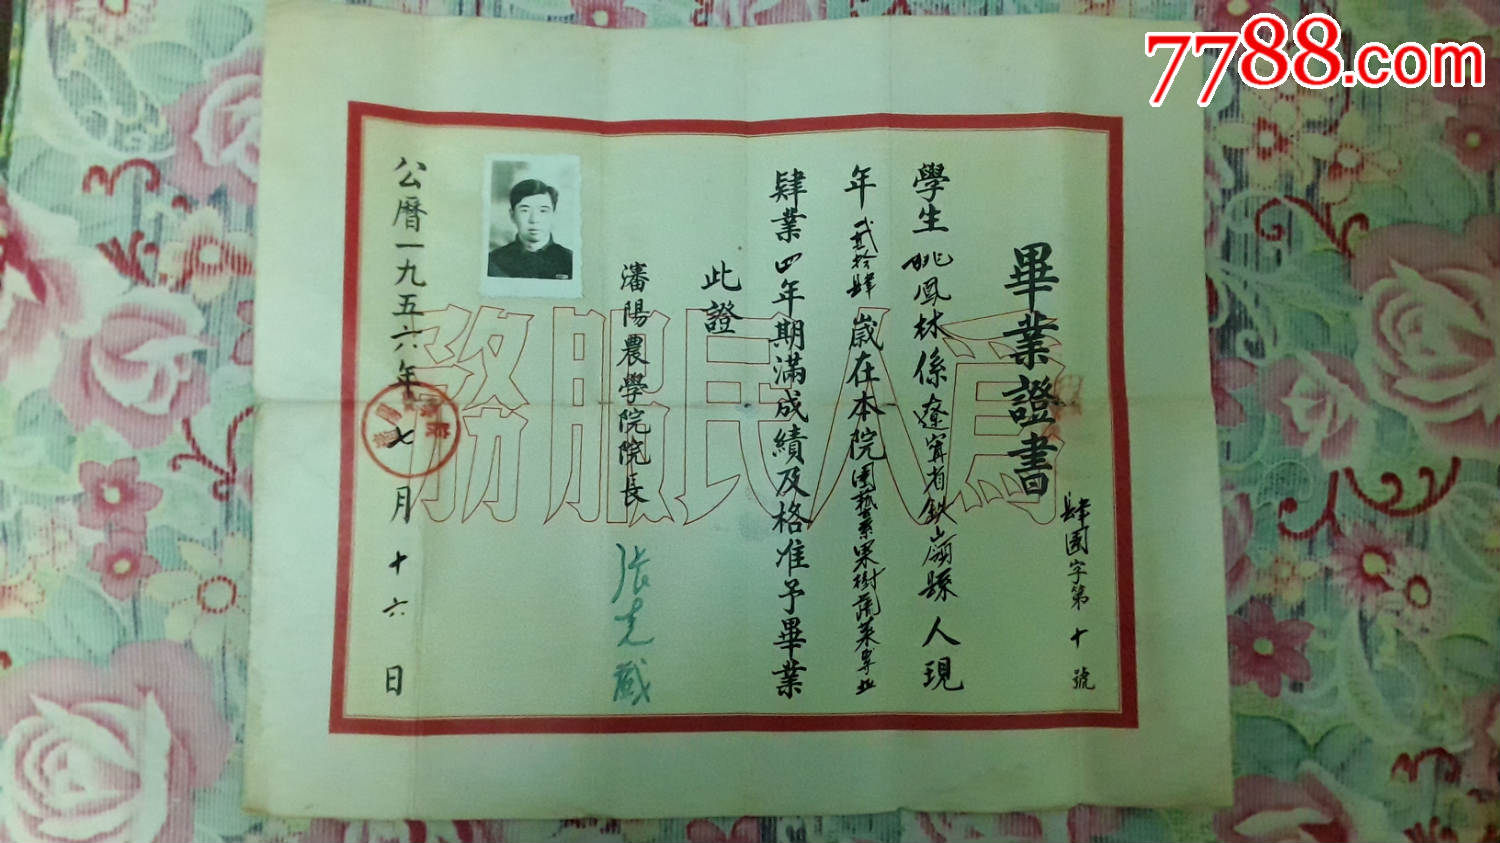 7788.com
畢業證書
肆園字第十號
學生姚鳳林係遼寧省鉄嶺縣人現
年弍拾肆歲在本院園藝系果樹蔬菜專业
肄業四年期滿成績及格准予畢業
此證
瀋陽農學院院長 張克威
公曆一九五六年七月十六日
爲人民服務